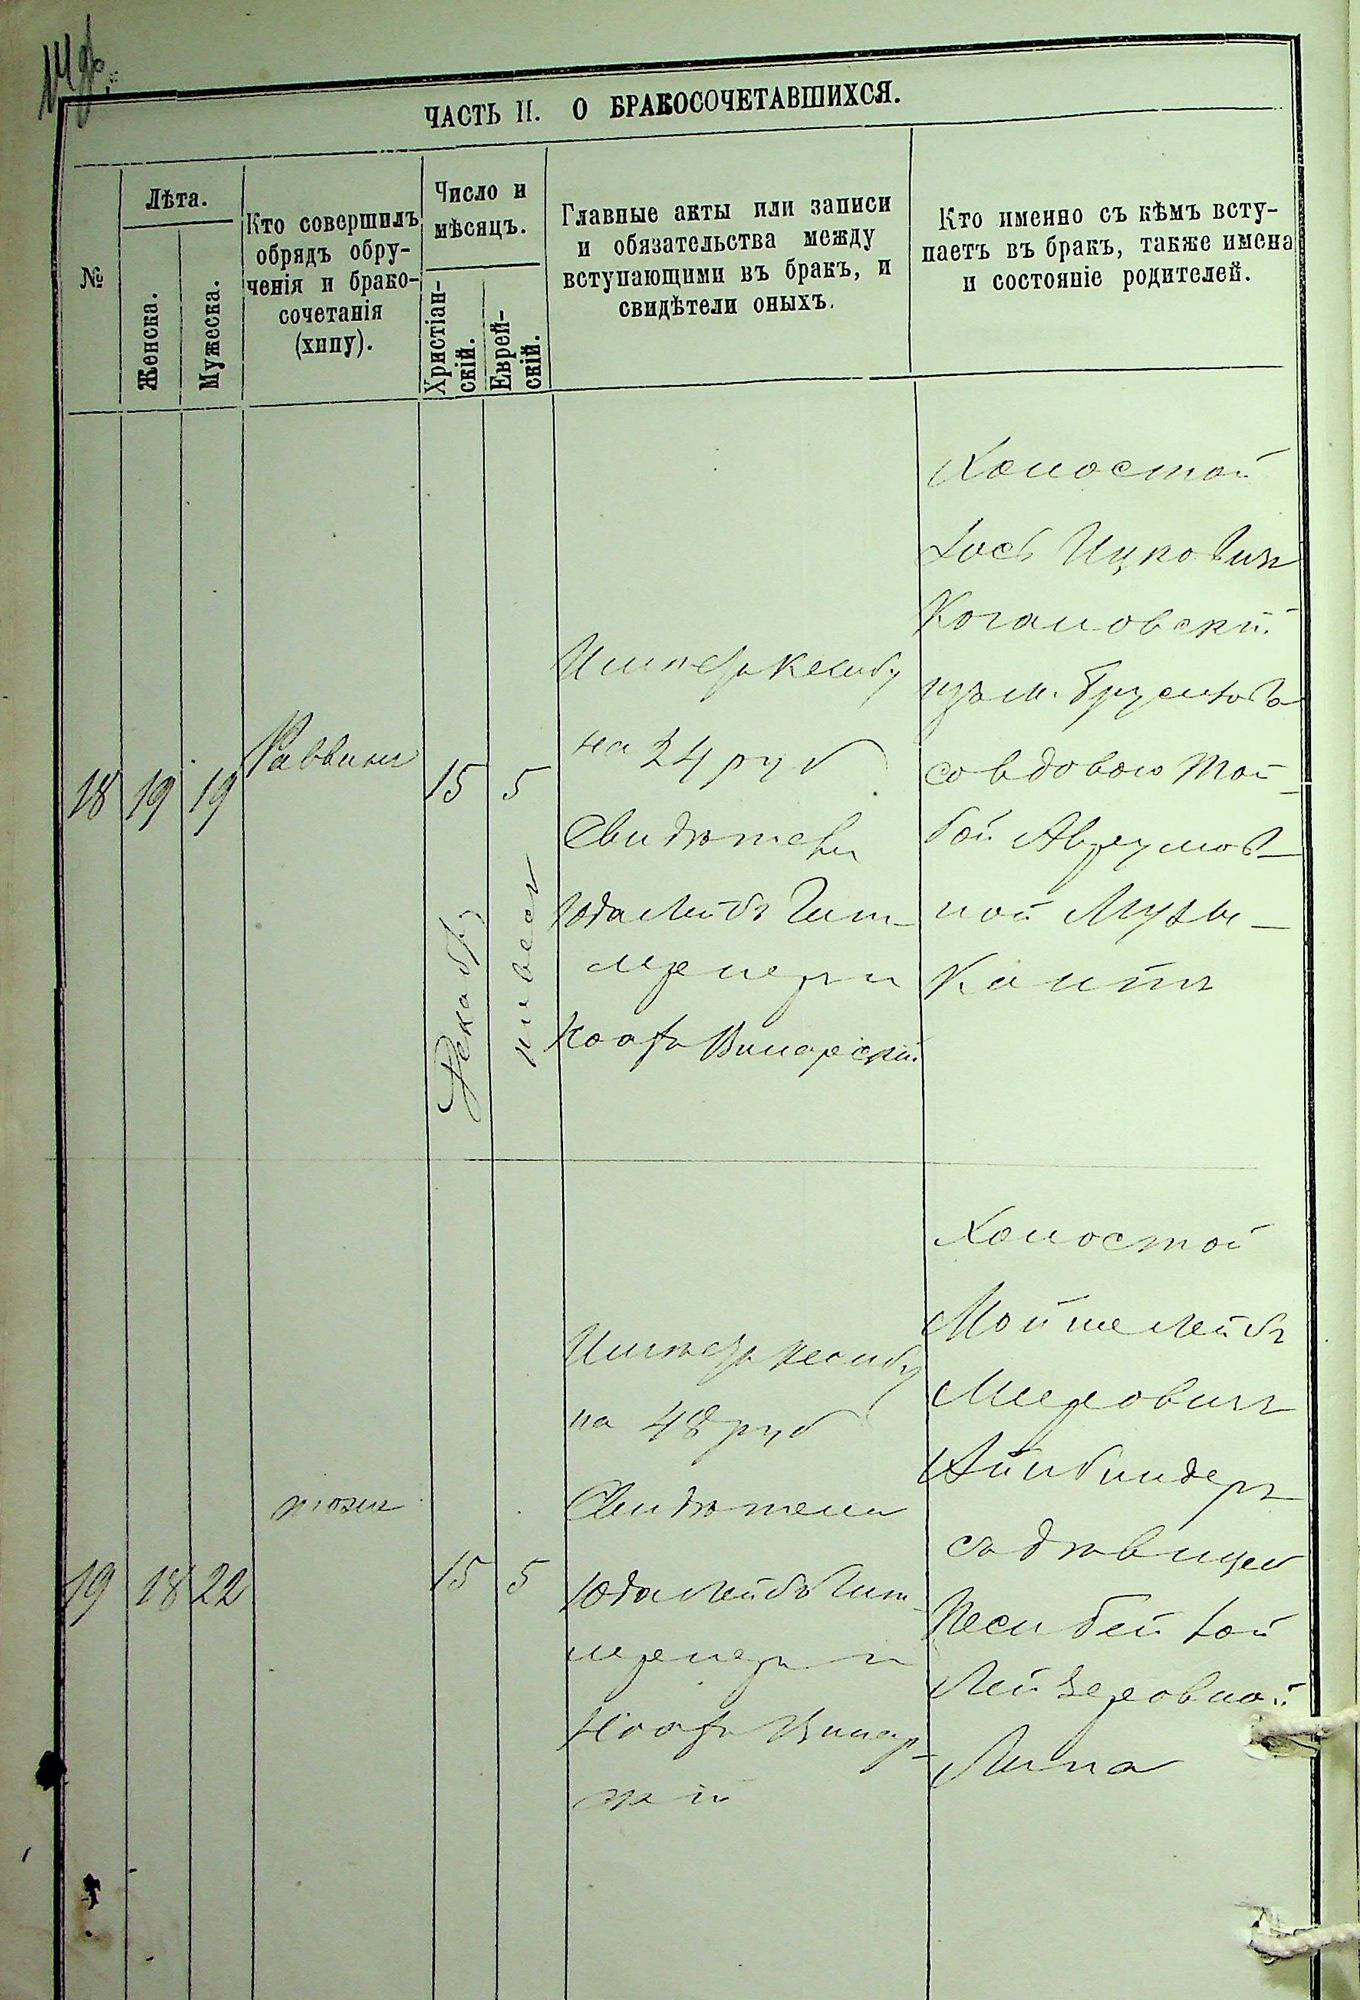 ЧАСТЬ II. О БРАКОСОЧЕТАВШИХСЯ.
№
Лѣта.
Женска.
Мужеска.
Кто совершилъ
обрядъ обру-
ченія и брако-
сочетанія
(хипу).
Число и
мѣсяцъ.
Христіан-
скій.
Еврей-
скій.
Главные акты или записи
и обязательства между
вступающими въ бракъ, и
свидѣтели оныхъ.
Кто именно съ кѣмъ всту-
паетъ въ бракъ, также имена
и состояніе родителей.
18
19
19
Раввинъ
15
Декабрь
5
на 24 руб
Свидѣтели
Юда Лейбъ Гит-
Холостой
Іось Ицковичъ
Когановскій
изъ м.
со вдовою Той-
бой Аврумов-
ной Музы-
кантъ
19
18
22
тожъ
15
5
на 48 руб
Свидѣтели
Юда Лейбъ Гит-
Холостой
Мойше Лейбъ
Мееровичъ
Айнбиндеръ
съ дѣвицей
Песи Бейлой
Лейзеровной